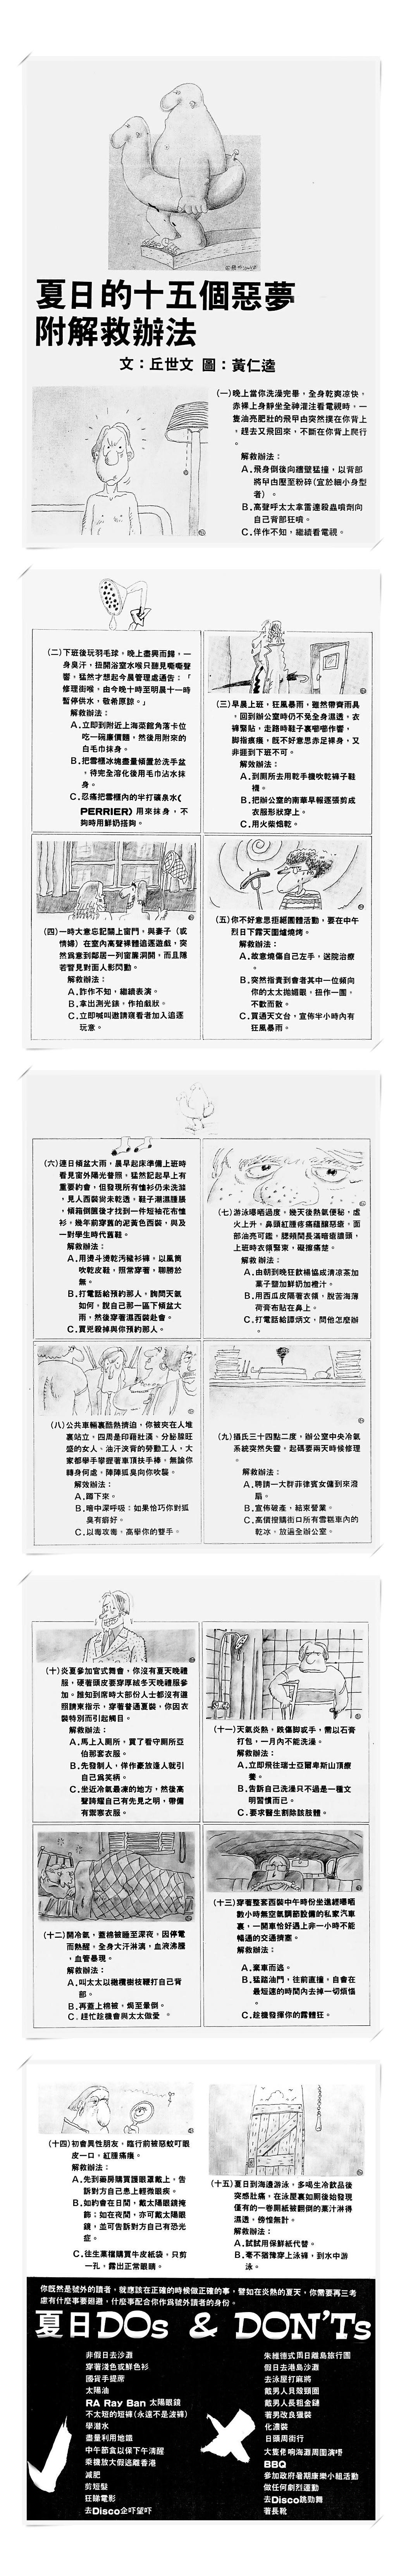 夏日的十五個惡夢
附解救辦法
文：丘世文 圖：黃仁逵
（一）晚上當你洗澡完畢，全身乾爽涼快，
赤裸上身靜坐全神灌注看電視時，一
隻油亮肥壯的飛曱甴突然撲在你背上
，趕去又飛回來，不斷在你背上爬行
。
解救辦法：
A．飛身倒後向牆壁猛撞，以背部
將曱甴壓至粉碎（宜於細小身型
者）。
B．高聲呼太太拿雷達殺蟲噴劑向
自己背部狂噴。
C．佯作不知，繼續看電視。
（二）下班後玩羽毛球，晚上盡興而歸，一
身臭汗，扭開浴室水喉只聽見嘶嘶聲
響，猛然才想起今晨管理處通告：「
修理街喉，由今晚十時至明晨十一時
暫停供水，敬希原諒。」
解救辦法：
A．立即到附近上海菜館角落卡位
吃一碗廉價麵，然後用附來的
白毛巾抹身。
B．把雪櫃冰塊盡量傾置於洗手盆
，待完全溶化後用毛巾沾水抹
身。
C．忍痛把雪櫃內的半打礦泉水（
PERRIER）用來抹身，不
夠時用鮮奶搭夠。
（三）早晨上班，狂風暴雨，雖然帶齊雨具
，回到辦公室時仍不免全身濕透，衣
褲緊貼，走路時鞋子裏唧唧作響，
脚指痕癢，旣不好意思赤足裸身，又
非捱到下班不可。
解救辦法：
A．到厠所去用乾手機吹乾褲子鞋
襪。
B．把辦公室的南華早報逐張剪成
衣服形狀穿上。
C．用火柴焙乾。
（四）一時大意忘記關上窗門，與妻子（或
情婦）在室內高聲裸體追逐遊戲，突
然爲意到鄰居一列窗簾洞開，而且隱
若瞥見對面人影閃動。
解救辦法：
A．詐作不知，繼續表演。
B．拿出測光錶，作拍戲狀。
C．立即喊叫邀請窺看者加入追逐
玩意。
（五）你不好意思拒絕團體活動，要在中午
烈日下露天圍爐燒烤。
解救辦法：
A．故意燒傷自己左手，送院治療
。
B．突然指責到會者其中一位頻向
你的太太拋媚眼，扭作一團，
不歡而散。
C．買通天文台，宣佈半小時內有
狂風暴雨。
（六）連日傾盆大雨，晨早起床準備上班時
看見窗外陽光普照，猛然記起早上有
重要約會，但發現所有恤衫仍未洗滌
，見人西裝尚未乾透，鞋子潮濕腫脹
，傾箱倒匱後才找到一件短袖花布恤
衫，幾年前穿舊的泥黃色西裝，與及
一對學生時代舊鞋。
解救辦法：
A．用燙斗燙乾汚穢衫褲，以風筒
吹乾皮鞋，照常穿著，聊勝於
無。
B．打電話給預約那人，詢問天氣
如何，說自己那一區下傾盆大
雨，然後穿著濕西裝赴會。
C．買兇殺掉與你預約那人。
（七）游泳曝晒過度，幾天後熱氣便秘，虛
火上升，鼻頭紅腫疼痛蘊釀惡瘡，面
部油亮可鑑，腮頰間長滿暗瘡膿頭，
上班時衣領緊束，礙擦痛楚。
解救辦法：
A．由朝到晚狂飲楊協成清涼茶加
菓子鹽加鮮奶加橙汁。
B．用西瓜皮隔著衣領，脫苦海薄
荷膏布貼在鼻上。
C．打電話給譚炳文，問他怎麼辦
。
（八）公共車輛裏酷熱擠迫，你被夾在人堆
裏站立，四周是印藉壯漢、分泌腺旺
盛的女人、油汗浹背的勞動工人，大
家都舉手攀握著車頂扶手棒。無論你
轉身何處，陣陣狐臭向你吹襲。
解救辦法：
A．蹲下來。
B．暗中深呼吸；如果恰巧你對狐
臭有癖好。
C．以毒攻毒，高舉你的雙手。
（九）攝氏三十四點二度，辦公室中央冷氣
系統突然失靈，起碼要兩天時候修理
。
解救辦法：
A．聘請一大群菲律賓女傭到來潑
扇。
B．宣佈破產，結束營業。
C．高價搜購街口所有雪糕車內的
乾冰，放滿全辦公室。
（十）炎夏參加官式舞會，你沒有夏天晚禮
服，硬著頭皮要穿厚絨冬天晚禮服參
加。誰知到席時大部份人士都沒有遵
照請柬指示，穿著普通夏裝，你因衣
裝特別而引起觸目。
解救辦法：
A．馬上入厠所，買了看守厠所亞
伯那套衣服。
B．先發制人，佯作豪放逢人就引
自己爲笑柄。
C．坐近冷氣最凍的地方，然後高
聲誇耀自己有先見之明，帶備
有禦寒衣服。
（十一）天氣炎熱，跌傷脚或手，需以石膏
打包，一月內不能洗澡。
解救辦法：
A．立即飛往瑞士亞爾卑斯山頂療
養。
B．告訴自己洗澡只不過是一種文
明習慣而已。
C．要求醫生割除該肢體。
（十二）開冷氣，蓋棉被睡至深夜，因停電
而熱醒，全身大汗淋漓，血液沸騰
，血管暴現。
解救辦法：
A．叫太太以橄欖樹枝鞭打自己背
部。
B．再蓋上棉被，焗至暈倒。
C．趕忙趁機會與太太做愛。
（十三）穿著整套西裝中午時份坐進經曝晒
數小時無空氣調節設備的私家汽車
裏，一開車恰好遇上非一小時不能
暢通的交通擠塞。
解救辦法：
A．棄車而逃。
B．猛踏油門，往前直撞，自會在
最短速的時間內去掉一切煩惱
。
C．趁機發揮你的露體狂。
（十四）初會異性朋友，臨行前被惡蚊叮眼
皮一口，紅腫痛癢。
解救辦法：
A．先到藥房購買護眼罩戴上，告
訴對方自己患上輕微眼疾。
B．如約會在日間，戴太陽眼鏡掩
飾；如在夜間，亦可戴太陽眼
鏡，並可告訴對方自己有恐光
症。
C．往生菓檔購買牛皮紙袋，只剪
一孔，露出正常眼睛。
（十五）夏日到海邊游泳，多喝生冷飲品後
突感肚痛，在泳屋裏如厠後始發現
僅有的一卷厠紙被翻倒的菓汁淋得
濕透，徬惶無計。
解救辦法：
A．試試用保鮮紙代替。
B．毫不猶豫穿上泳褲，到水中游
泳。
你旣然是號外的讀者，就應該在正確的時候做正確的事，譬如在炎熱的夏天，你需要再三考
慮有什麼事要迴避，什麼事配合你作爲號外讀者的身份。
夏日DOs & DON'Ts
非假日去沙灘
穿著淺色或鮮色衫
國貨手提席
太陽油
RA Ray Ban 太陽眼鏡
不太短的短褲（永遠不是波褲）
學潛水
盡量利用地鐵
中午節食以保下午清醒
乘機放大假逃離香港
減肥
剪短髮
狂睇電影
去Disco企吓望吓
朱維德式周日離島旅行團
假日去港島沙灘
去泳屋打麻將
戴男人貝殼頸圈
戴男人長粗金鏈
著男改良獵裝
化濃裝
日頭周街行
大隻佬响海灘周圍演嘢
BBQ
參加政府暑期康樂小組活動
做任何劇烈運動
去Disco跳勁舞
著長靴